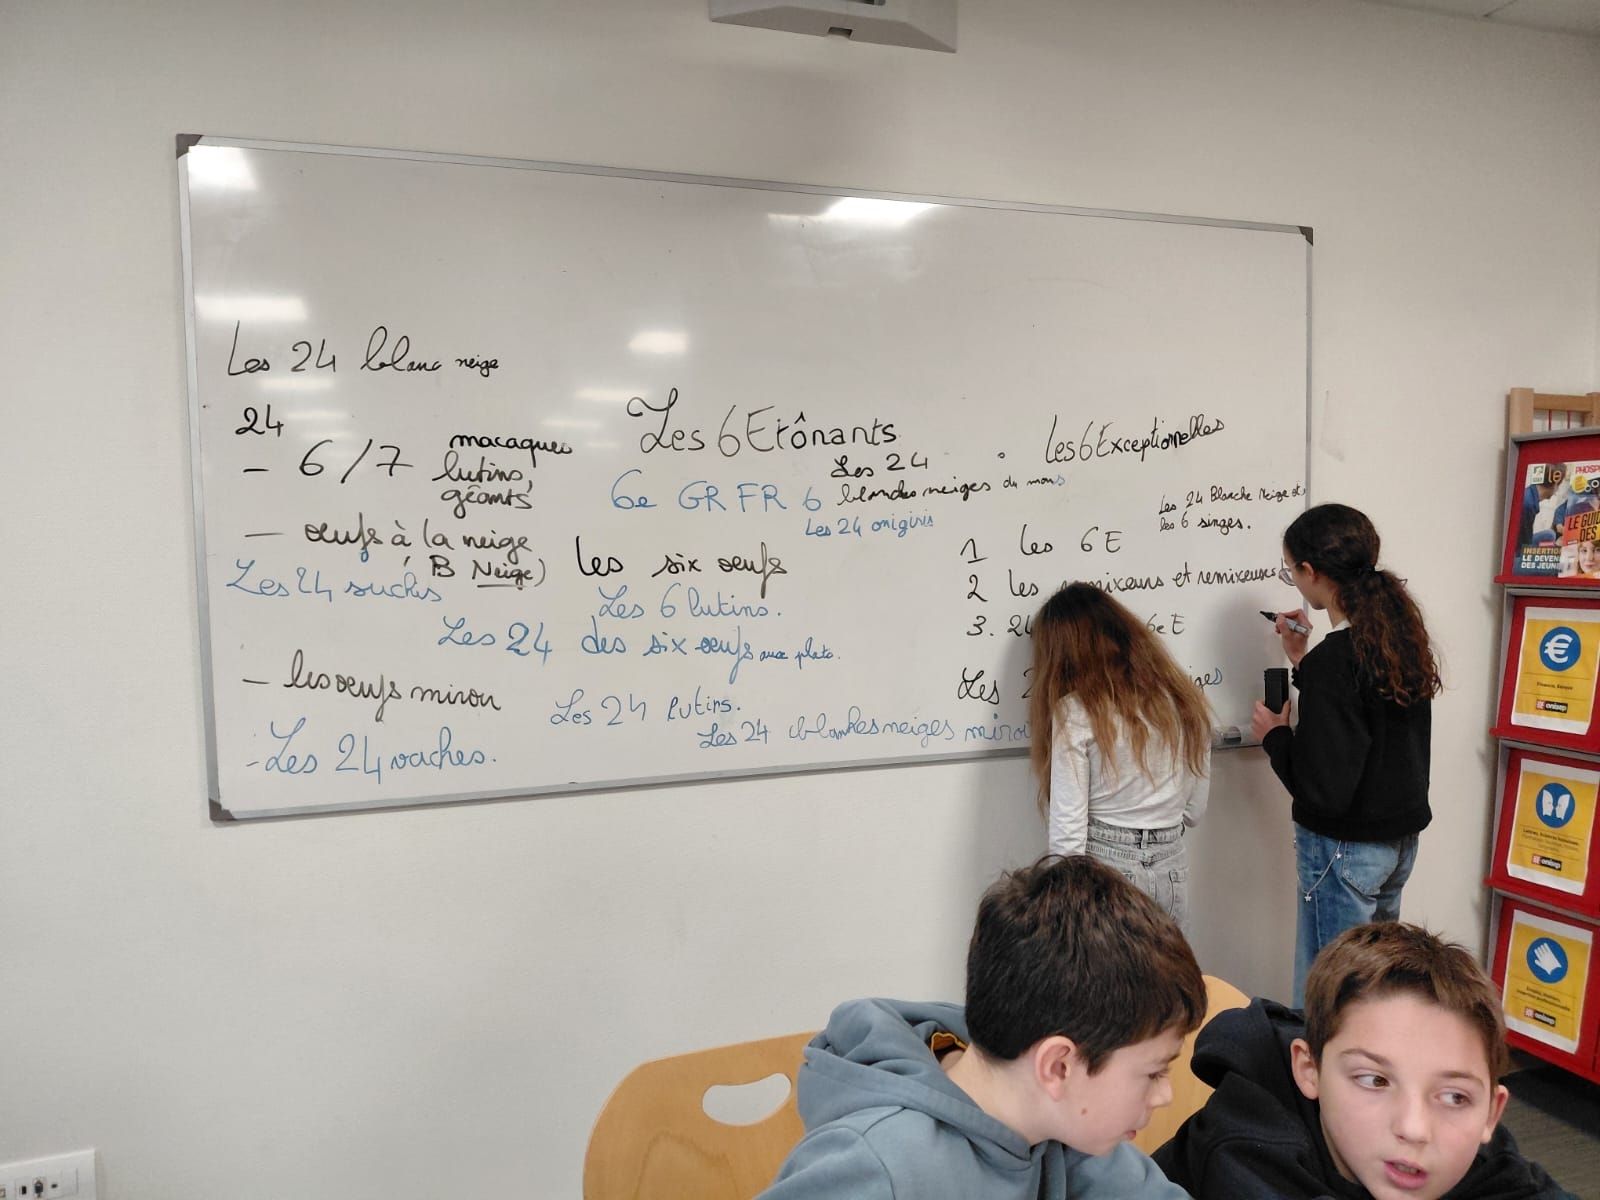 Les 24 blanc neige
24
- 6/7 macaques
lutins,
géants
- œufs à la neige
(B Neige)
Les 24 suchis
les six œufs
Les 6 lutins.
Les 24 des six œufs aux plats.
- les œufs miroir
Les 24 lutins.
- Les 24 vaches.
Les 24 blankesneiges miro
Les 6 Etônants
6e GR FR 6
Les 24
blanches neiges du mans
Les 24 onigiris
. Les 6 Exceptionnelles
Les 24 Blanche Neige et
les 6 singes.
1 les 6E
2 les remixeurs et remixeuses
3. 24 6e E
Les 2 iges
LE GUIDE
DES
INSERTION
LE DEVENI
DES JEUNE
onisep
onisep
onisep